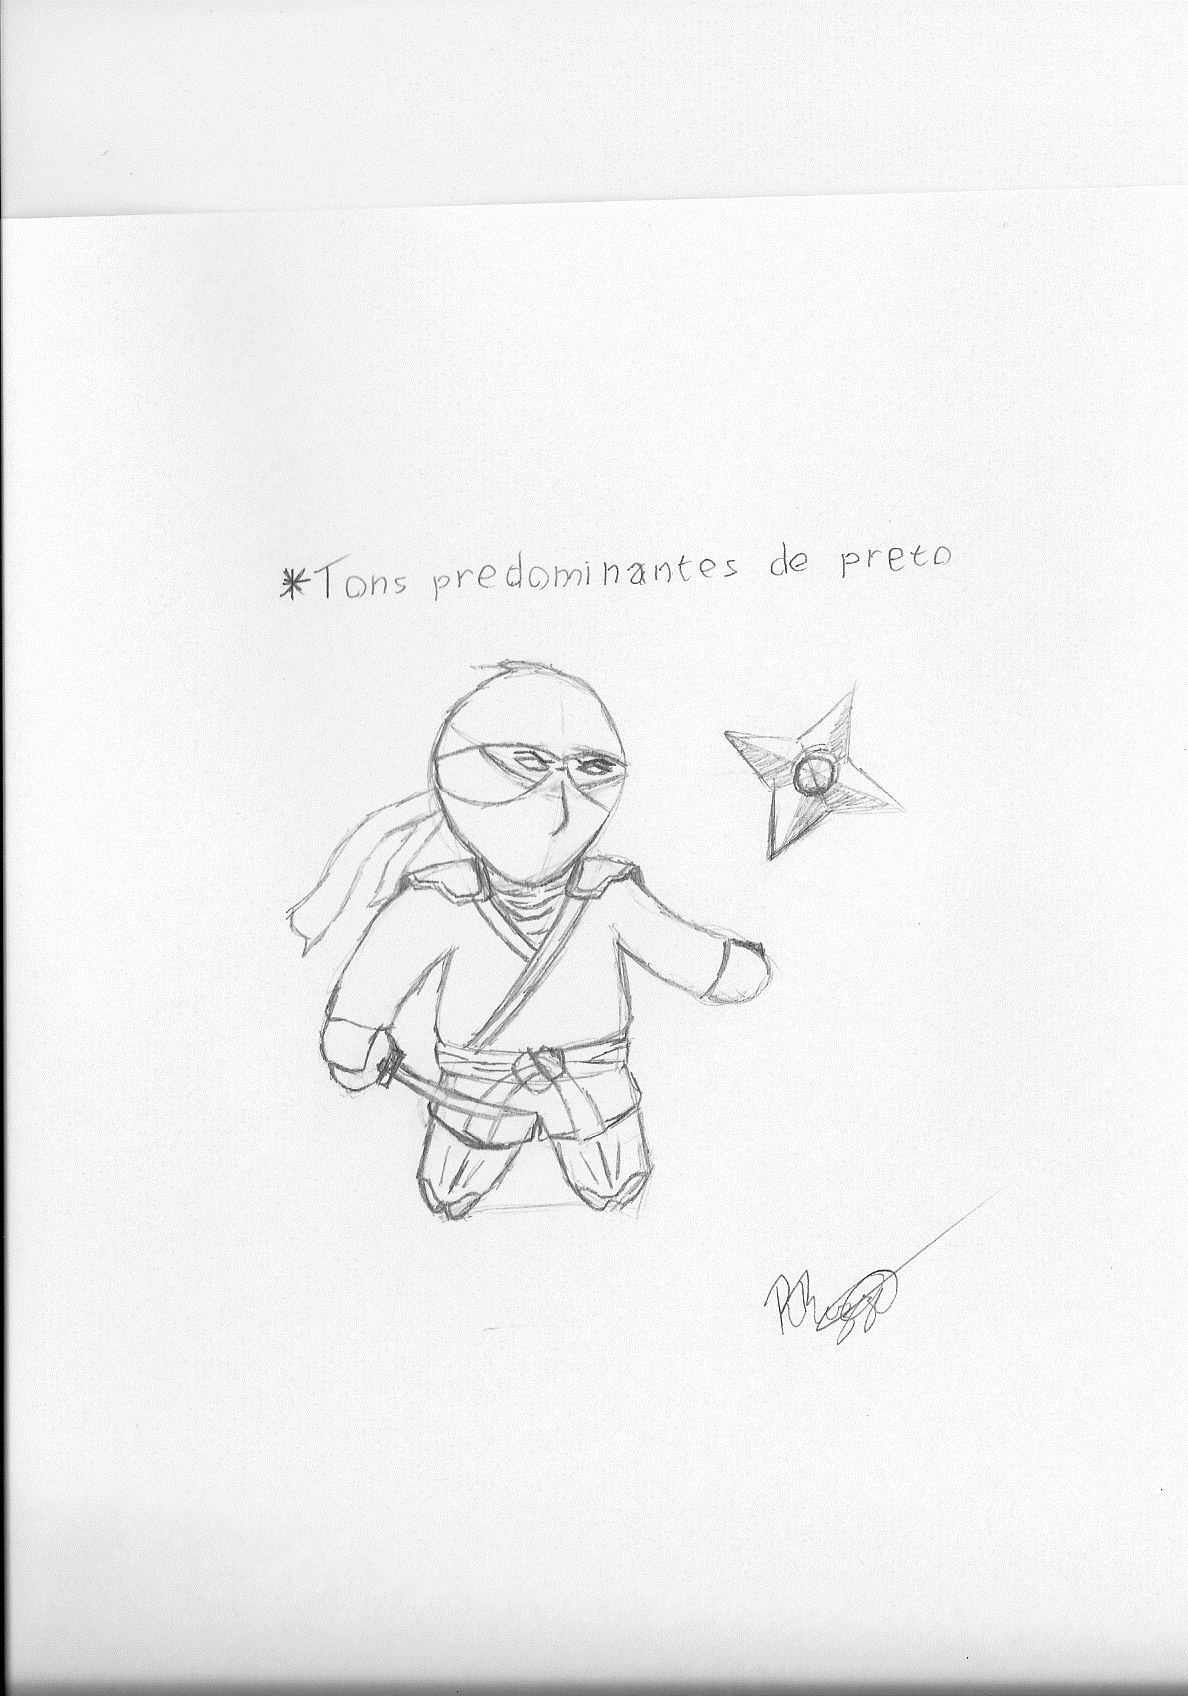 *Tons predominantes de preto